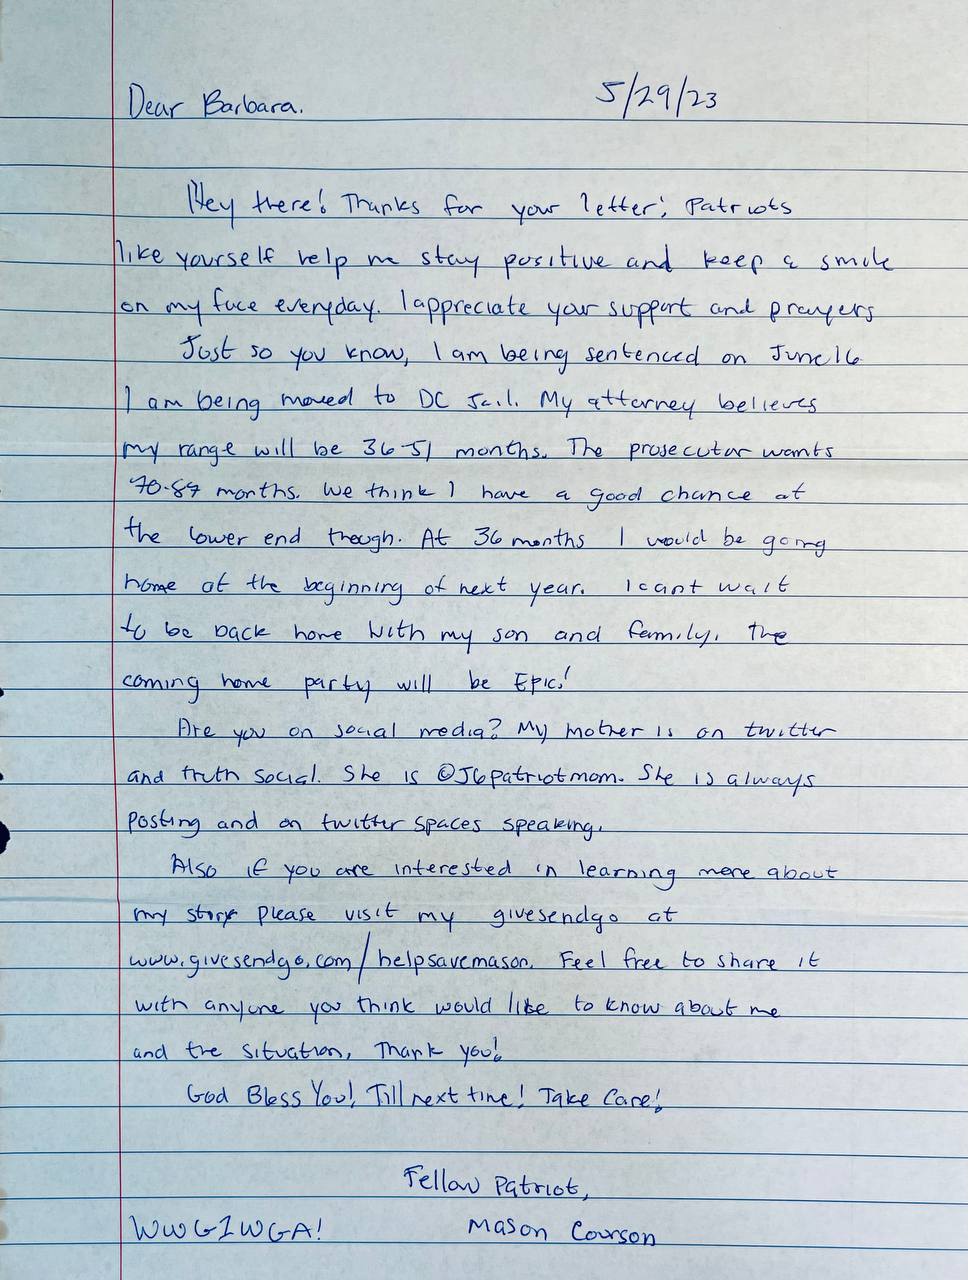 Dear Barbara. 5/29/23
Hey there! Thanks for your letter! Patriots
like yourself help me stay positive and keep a smile
on my face everyday. I appreciate your support and prayers
Just so you know, I am being sentenced on June 16
I am being moved to DC Jail. My attorney believes
my range will be 36-51 months. The prosecutor wants
70-87 months. We think I have a good chance at
the lower end though. At 36 months I would be going
home at the beginning of next year. I cant wait
to be back home with my son and family. The
coming home party will be Epic!
Are you on social media? My mother is on twitter
and truth social. She is @J6patriotmom. She is always
posting and on twitter spaces speaking.
Also if you are interested in learning more about
my story please visit my givesendgo at
www.givesendgo.com/helpsavemason. Feel free to share it
with anyone you think would like to know about me
and the situation, Thank you!
God Bless You! Till next time! Take Care!
Fellow Patriot,
WWG1WGA! Mason Courson